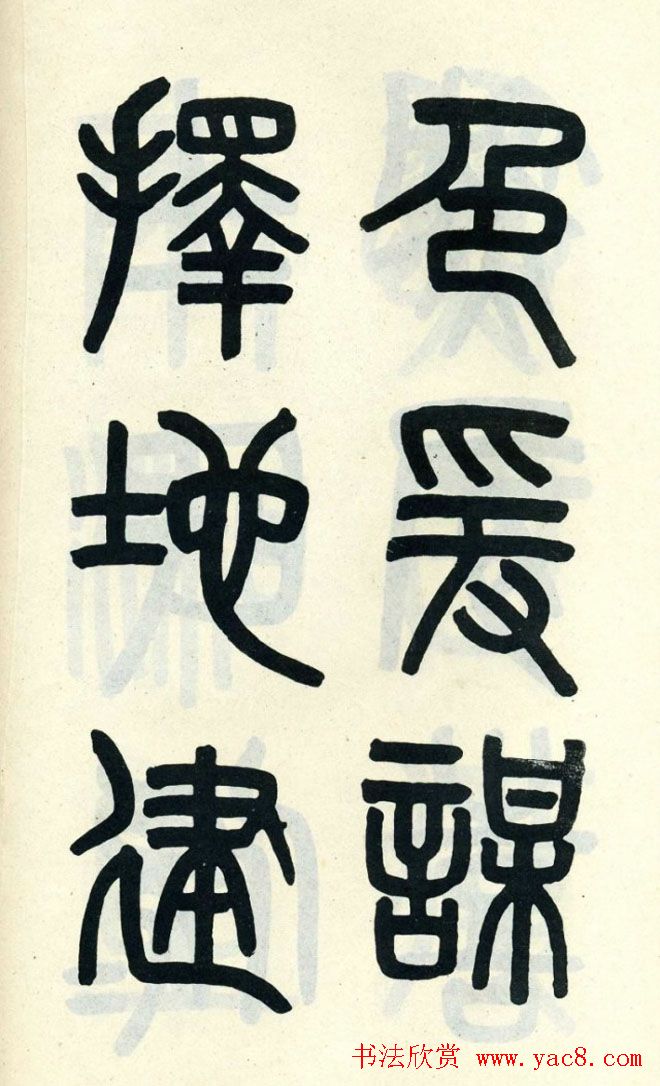 色爰謀
擇地建
书法欣赏 www.yac8.com